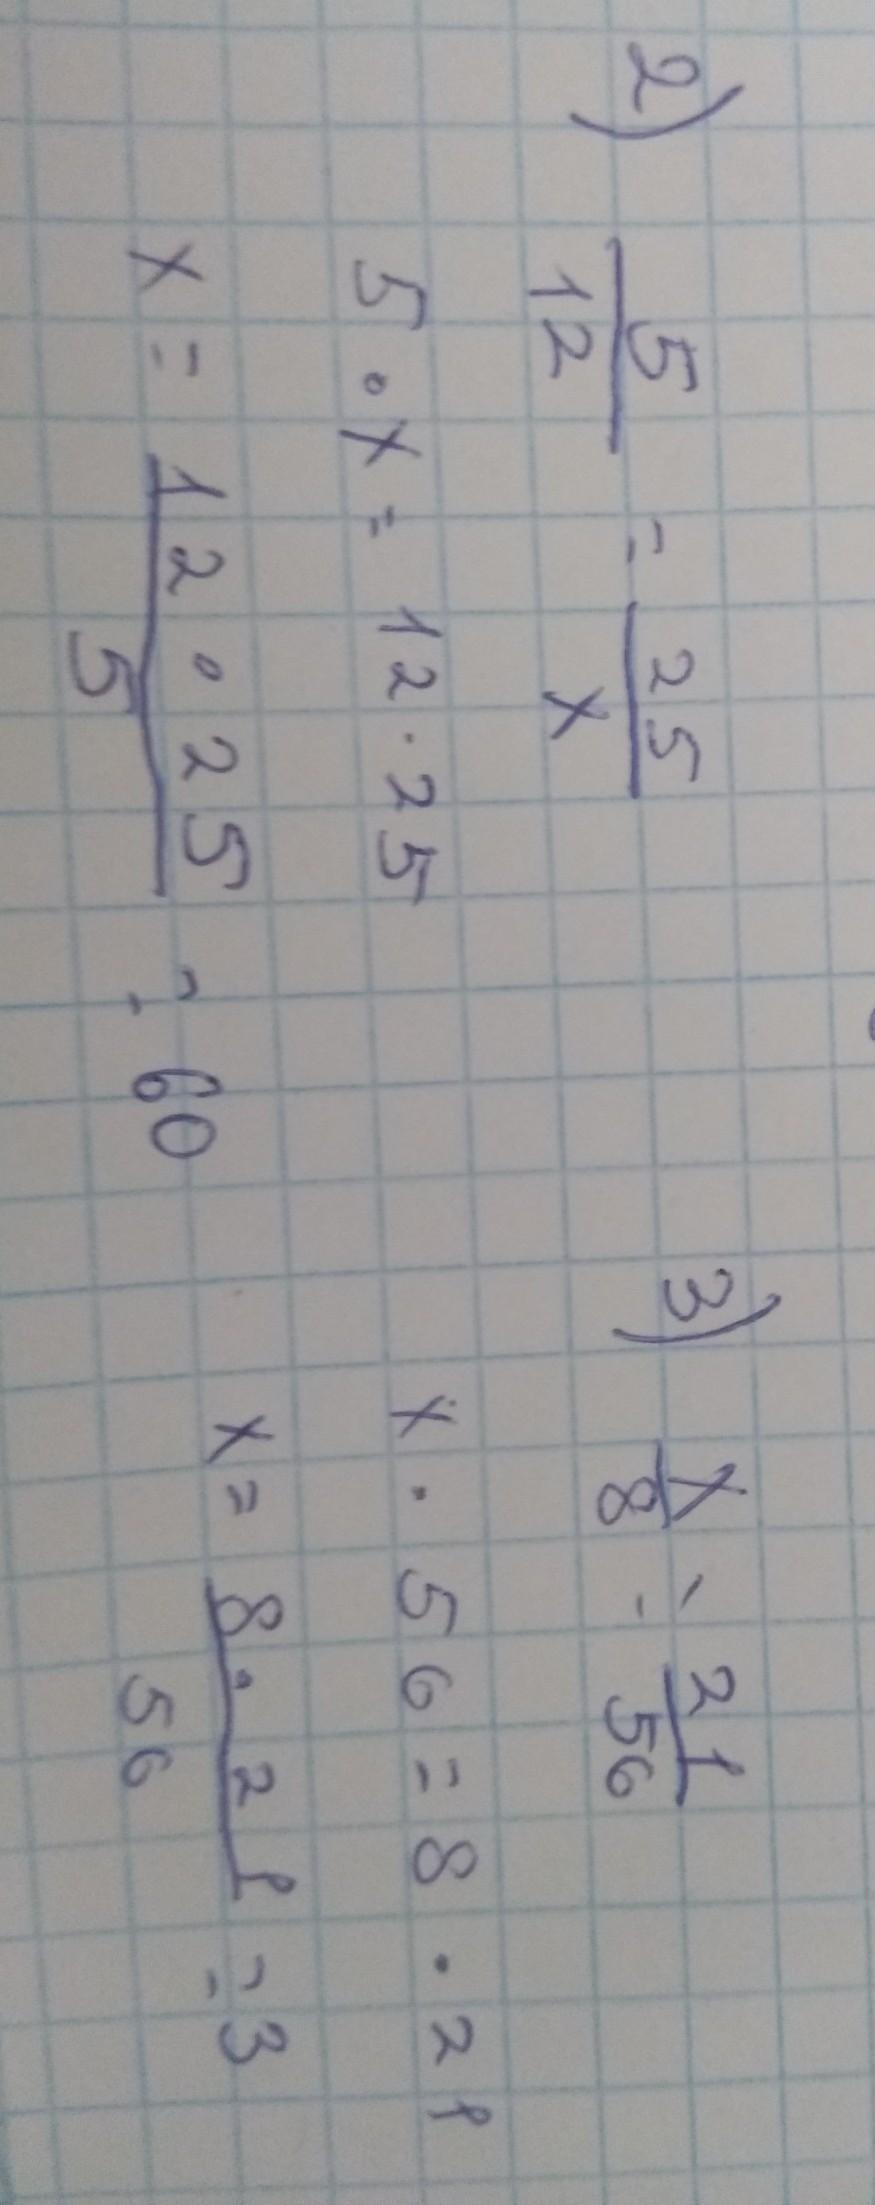 2) 5/12 = 25/x
5 · x = 12 · 25
x = 12 · 25/5 = 60
3) x/8 = 21/56
x · 56 = 8 · 21
x = 8 · 21/56 = 3